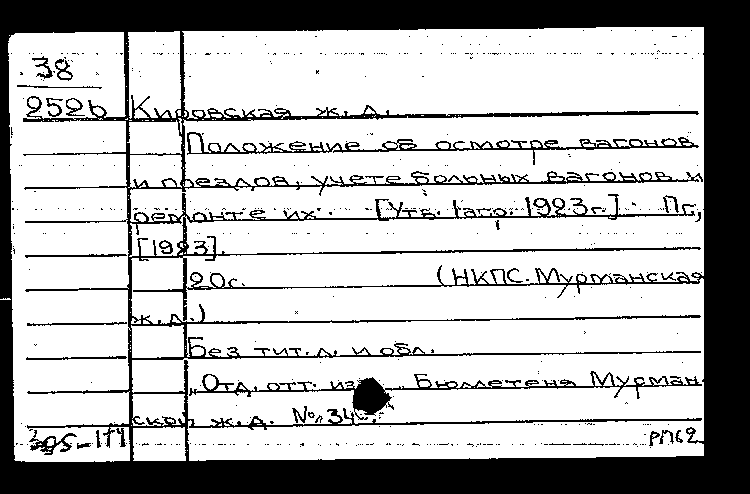 38
252b Кировская ж. д.
Положение об осмотре вагонов
и поездов, учете больных вагонов и
ремонте их. [Утв. 1 апр. 1923 г.]. Пг.,
[1923].
20 с. (НКПС. Мурманская
ж. д.)
Без тит. л. и обл.
„Отд. отт. из Бюллетеня Мурман-
ской ж. д. №
РМ62